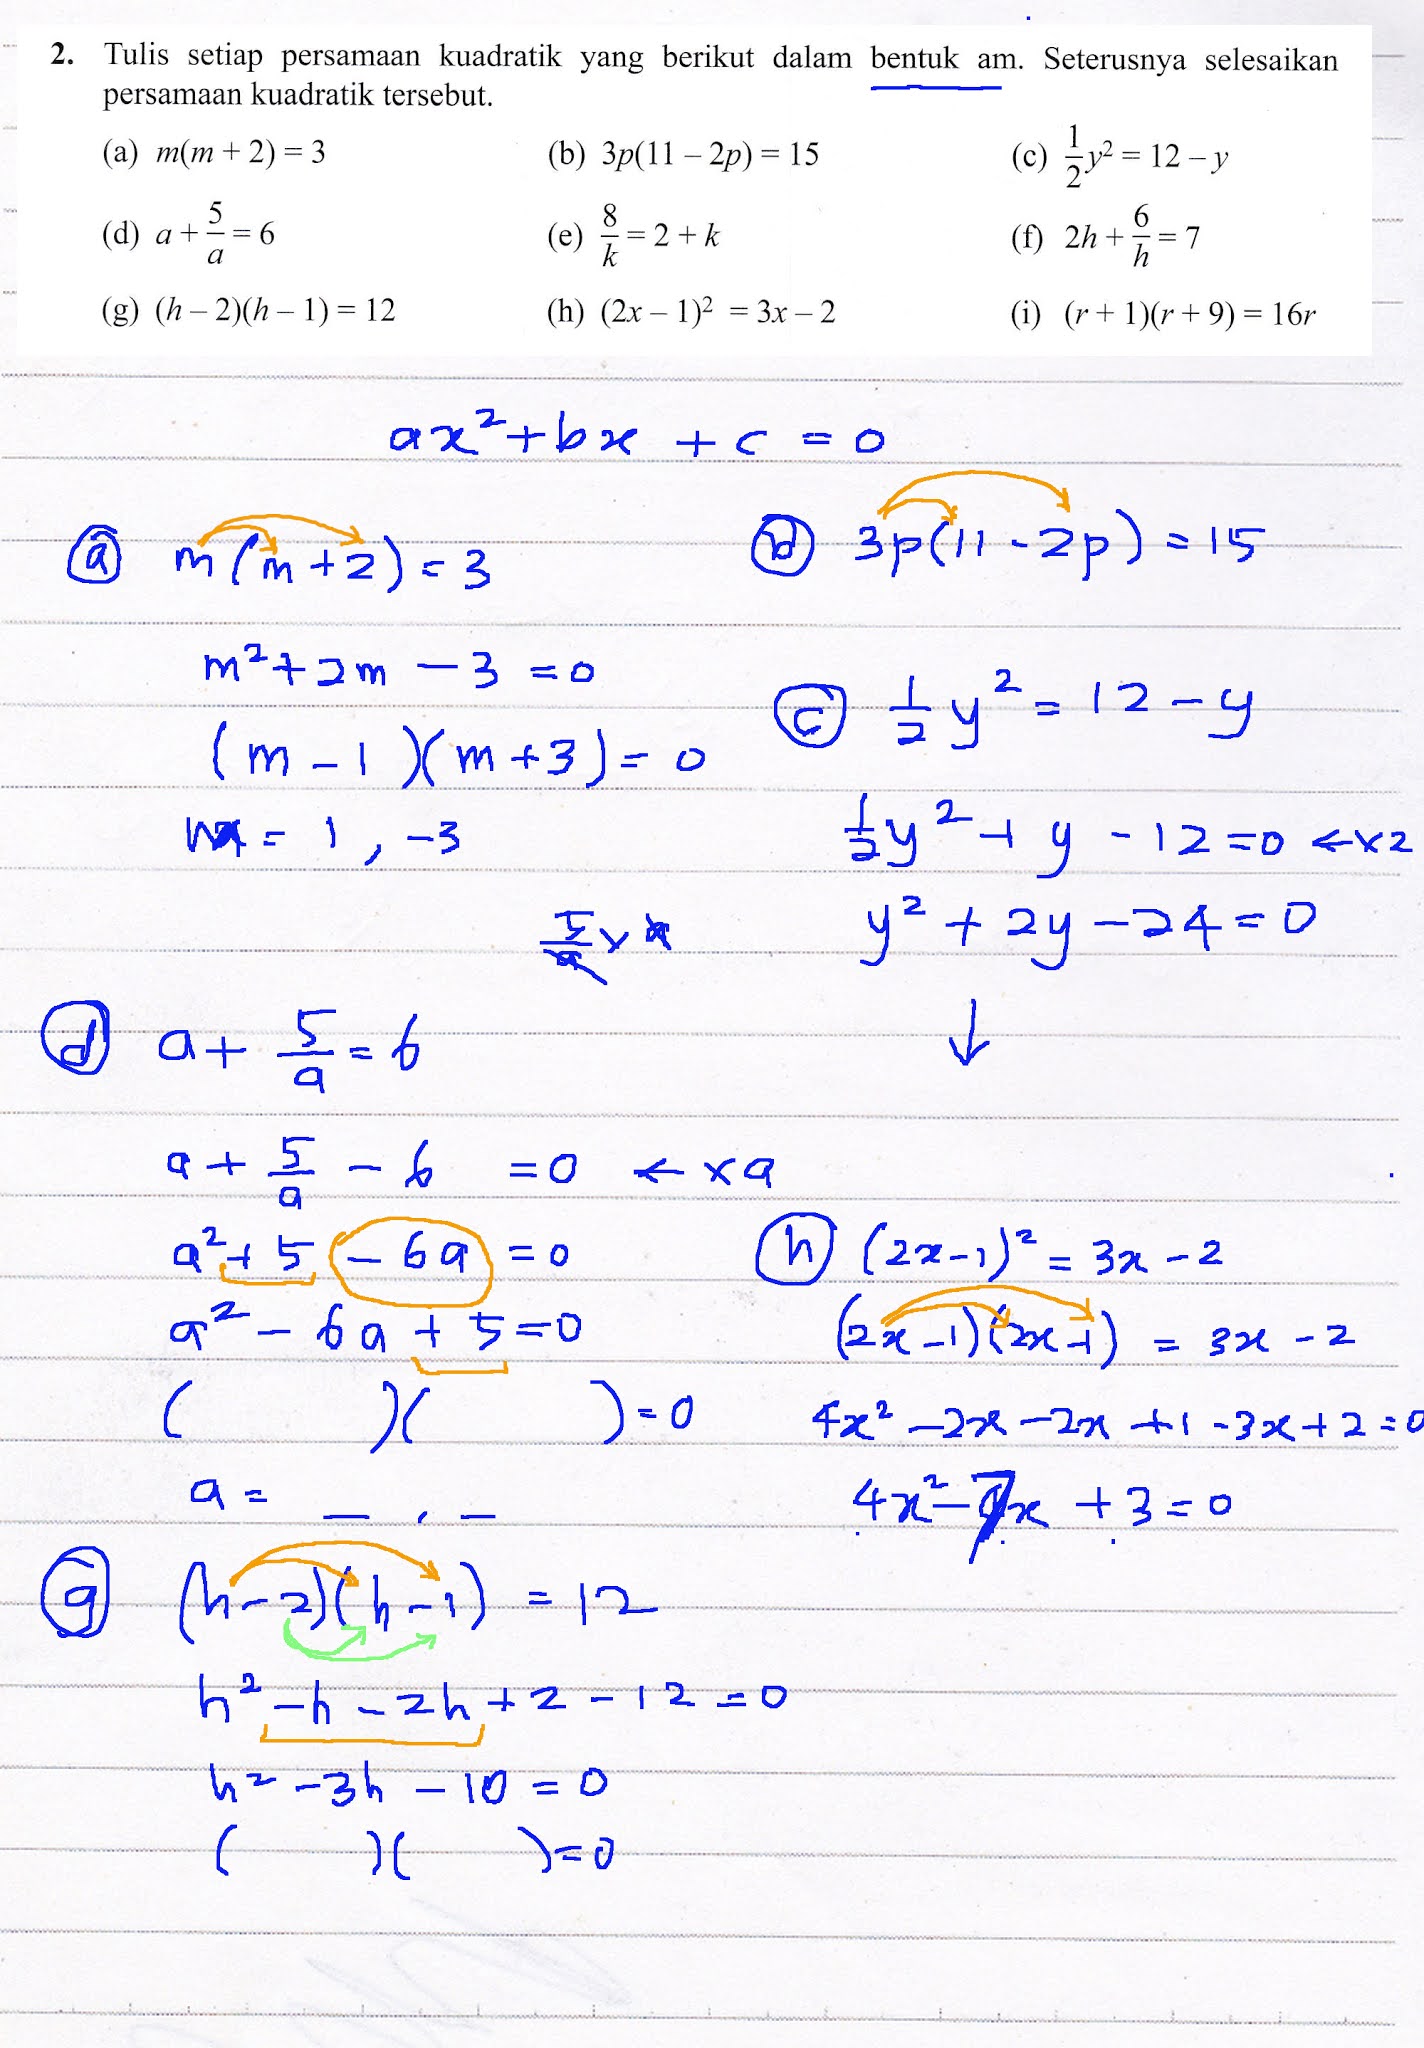 2. Tulis setiap persamaan kuadratik yang berikut dalam bentuk am. Seterusnya selesaikan
persamaan kuadratik tersebut.
(a) m(m + 2) = 3 (b) 3p(11 – 2p) = 15 (c) 1/2 y² = 12 – y
(d) a + 5/a = 6 (e) 8/k = 2 + k (f) 2h + 6/h = 7
(g) (h – 2)(h – 1) = 12 (h) (2x – 1)² = 3x – 2 (i) (r + 1)(r + 9) = 16r
ax² + bx + c = 0
(a) m(m + 2) = 3
m² + 2m – 3 = 0
(m – 1)(m + 3) = 0
m = 1, –3
(b) 3p(11 – 2p) = 15
(c) 1/2 y² = 12 – y
1/2 y² + y – 12 = 0 ← × 2
y² + 2y – 24 = 0
↓
5/a × a
(d) a + 5/a = 6
a + 5/a – 6 = 0 ← × a
a² + 5 – 6a = 0
a² – 6a + 5 = 0
( )( ) = 0
a = _ , _
(g) (h – 2)(h – 1) = 12
h² – h – 2h + 2 – 12 = 0
h² – 3h – 10 = 0
( )( ) = 0
(h) (2x – 1)² = 3x – 2
(2x – 1)(2x – 1) = 3x – 2
4x² – 2x – 2x + 1 – 3x + 2 = 0
4x² – 7x + 3 = 0